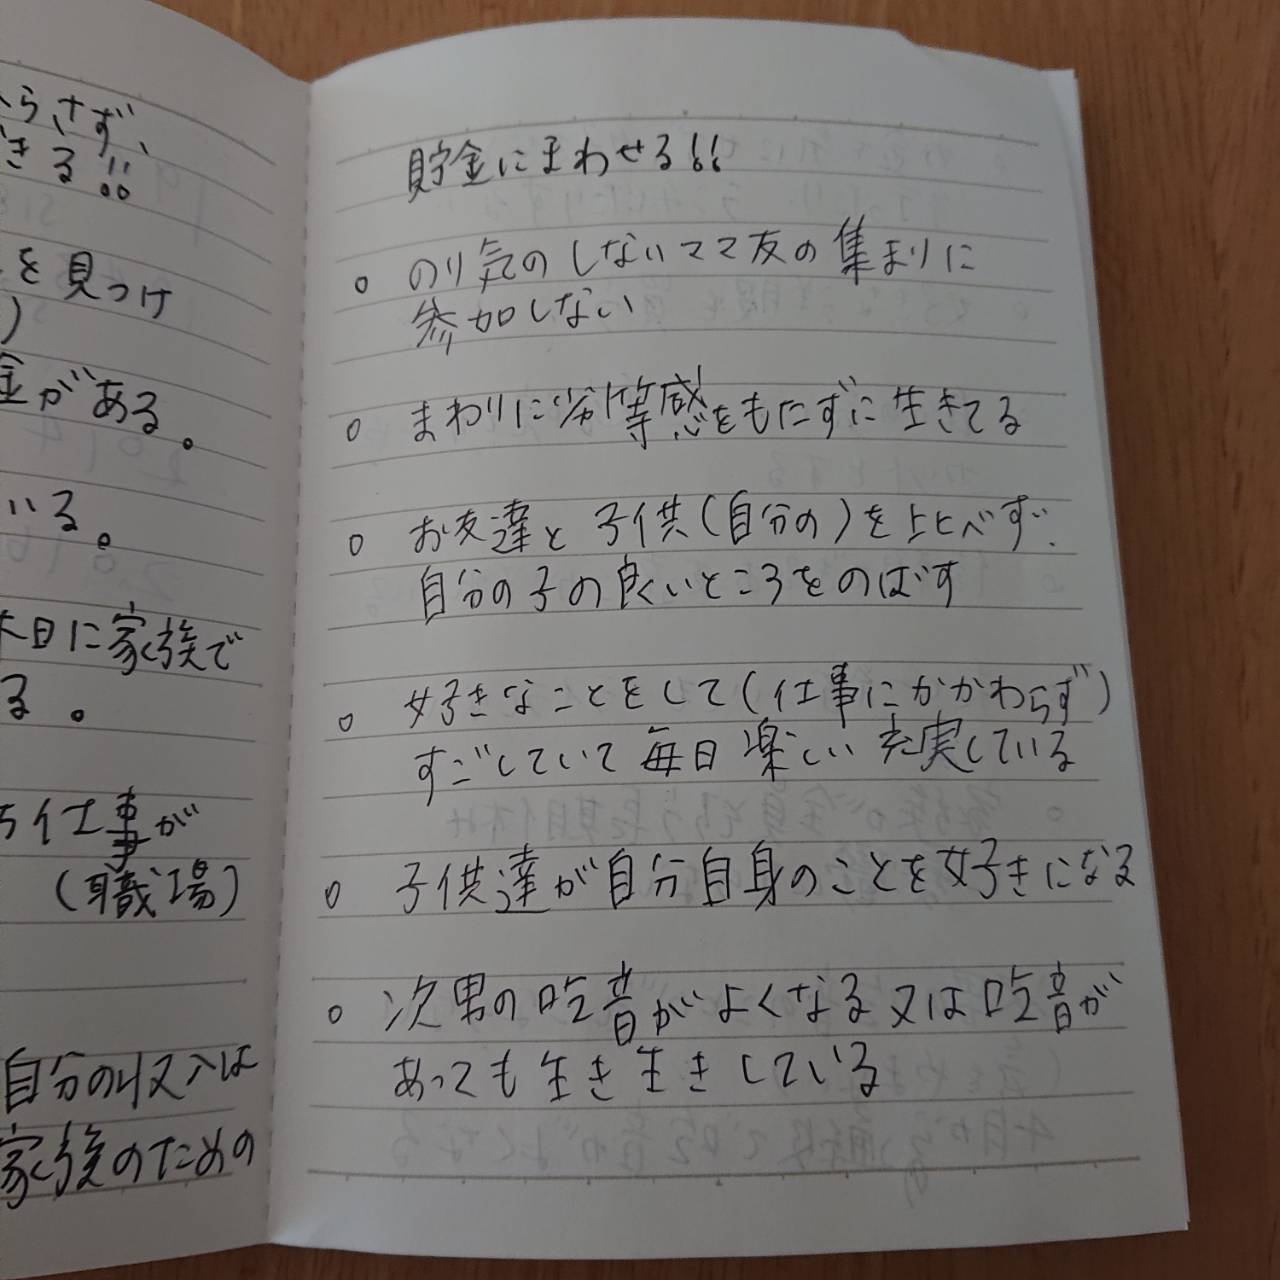 らさず、
きる!!
を見つけ
)
金がある。
いる。
休日に家族で
る。
仕事が
(職場)
自分の収入は
家族のための
貯金にまわせる!!
○ のり気のしないママ友の集まりに
参加しない
○ まわりに劣等感をもたずに生きてる
○ お友達と子供(自分の)を比べず、
自分の子の良いところをのばす
○ 好きなことをして(仕事にかかわらず)
すごしていて毎日楽しい充実している
○ 子供達が自分自身のことを好きになる
○ 次男の吃音がよくなる又は吃音が
あっても生き生きしている